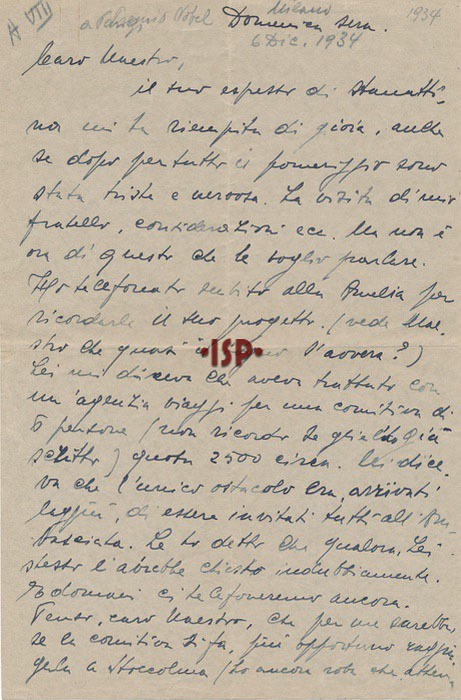 A VIII
a Palazzo Nobel Milano 1934
Domenica sera.
6 Dic. 1934
Caro Maestro,
il suo espresso di stamatti-
na mi ha riempita di gioia, anche
se dopo per tutto il pomeriggio sono
stata triste e nervosa. La visita di mio
fratello, considerazioni ecc. Ma non è
ora di questo che le voglio parlare.
Ho telefonato subito alla Amelia per
ricordarle il suo progetto. (vede Mae-
stro che quasi s'avvera?)
ISP
Lei mi diceva che aveva trattato con
un'agenzia viaggi per una comitiva di
5 persone (non ricordo se gliel'ho già
scritto) quota 2500 circa. Lei dice-
va che l'unico ostacolo era, arrivati
laggiù, di essere invitati tutti all'Am-
basciata. Le ho detto che qualora, Lei
stesso l'avrebbe chiesto indubbiamente.
E domani ci telefoneremo ancora.
Penso, caro Maestro, che per me sarebbe,
se la comitiva si fa, più opportuno raggiun-
gerla a Stoccolma (ho ancora roba che